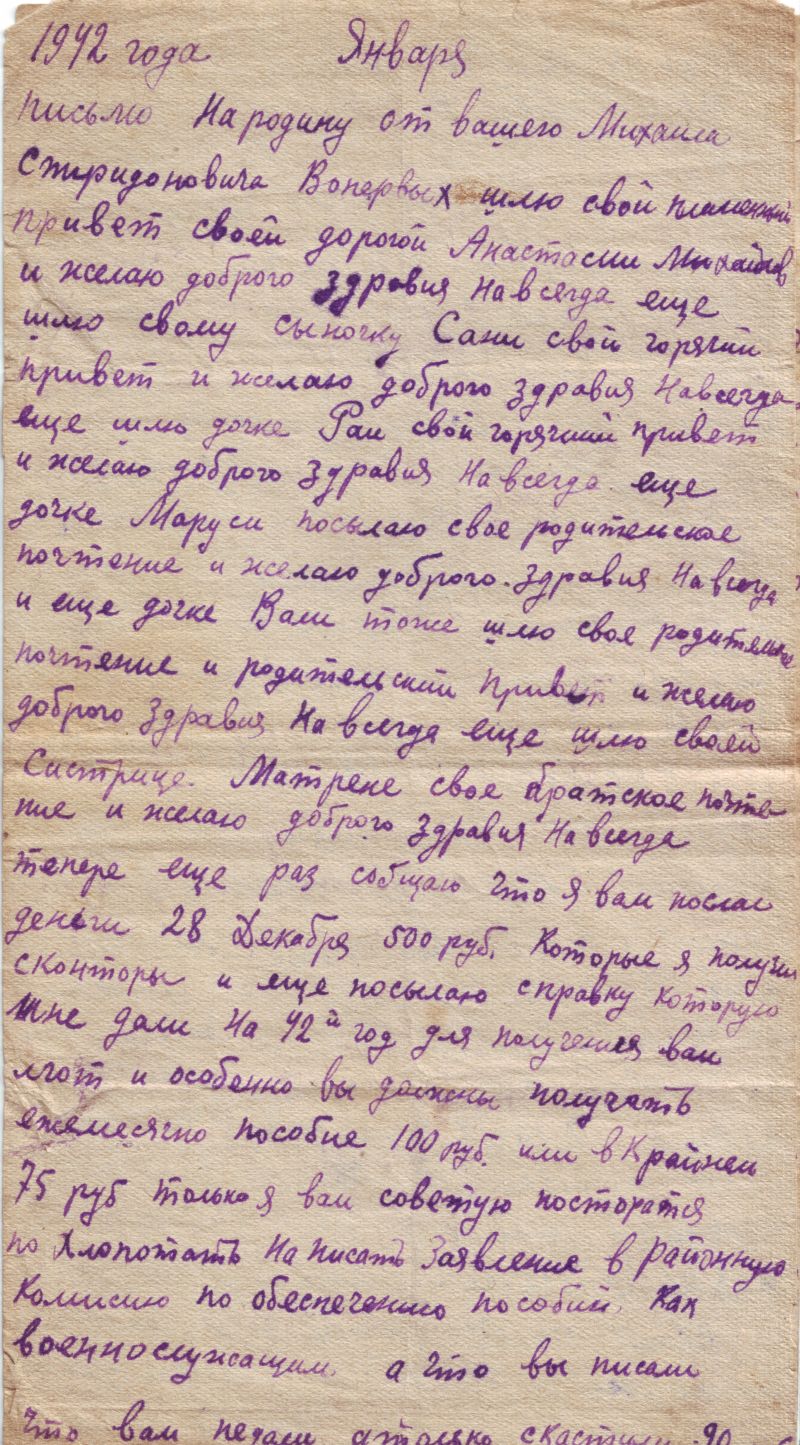 1942 года Января
письмо На родину от вашего Михаила
Спиридоновича Вопервых шлю свой пламенный
привет своей дорогой Анастасии Михайлов
и желаю доброго здравия На всегда еще
шлю свому сыночку Сани свой горячий
привет и желаю доброго здравия На всегда
еще шлю дочке Раи свой горячий привет
и желаю доброго здравия На всегда еще
дочке Маруси посылаю свое родительское
почтение и желаю доброго здравия На всегда
и еще дочке Вали тоже шлю свое родительское
почтение и родительский привет и желаю
доброго здравия На всегда еще шлю своей
Систрице Матрене свое братское почте
ние и желаю доброго здравия На всегда
тепере еще раз собщаю что я вам послал
деньги 28 Декабря 500 руб. Которые я получил
сконторы и еще посылаю справку которую
мне дали На 42й год для получения вам
лгот и особенно вы должны получать
ежемесячно пособие 100 руб. или в Крайнем
75 руб только я вам советую посторатся
по хлопотать На писать Заявление в районную
Комисию по обеспечению пособий Как
военнослужащим а что вы писали
что вам